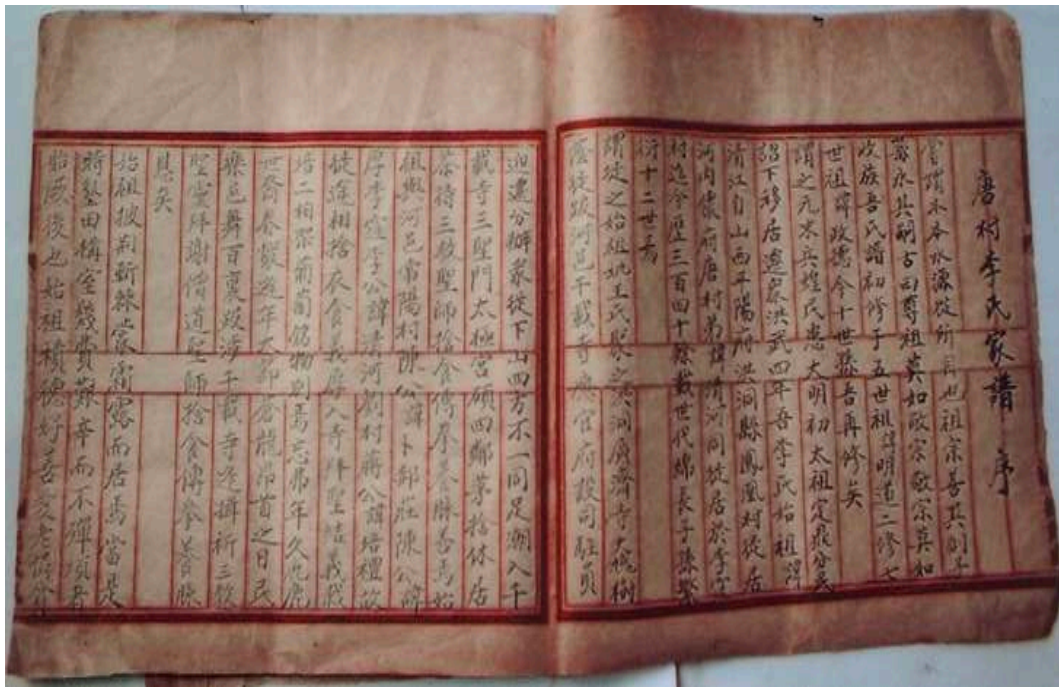 唐村李氏家譜序
嘗謂木本水源從所自也祖宗善其則子
孫永其嗣古曰尊祖莫如敬宗敬宗莫如
收族吾氏譜初修于五世祖諱明道二修七
世祖諱政德今十世孫晋再修矣
謂之元末兵煌民患大明初太祖定鼎分民
詔下移居遷眾洪武四年吾李氏始祖諱
清江自山西平陽府洪洞縣鳳凰村徙居
河內懷府唐村弟諱清河同徙居於李窪
村迄今歷三百四十餘載世代綿長子孫繁
衍十二世焉
謂徙之始祖妣王氏聚之洪洞廣濟寺大槐樹
蔭徒跋河邑千載寺旅官府設司駐員
迎遷分辦眾從下山四方不一同足潮入千
載寺三聖門太極宮碩四鄰茅捨休居
恭待三教聖師捨食傅拳養脉善焉始
祖與河邑常陽村陳公諱卜郝莊陳公諱
厚李窪李公諱清河劉村蔣公諱培禮故
徙途相捨衣食義厚入寺拜聖結義栽
培二柏眾葡萄銘物別焉忘弗年久危虎
世裔春聚遊年大卻倉龍昂首之日民
樂邑舞百裏跋涉千載寺叄拜祈三教
聖靈拜謝僧道聖師捨食傅拳養脉
恩矣
始祖披荆斬棘蒙霜露而居焉當是
時墾田構室幾費艱辛而不殫煩者
貽厥後也始祖積德好善